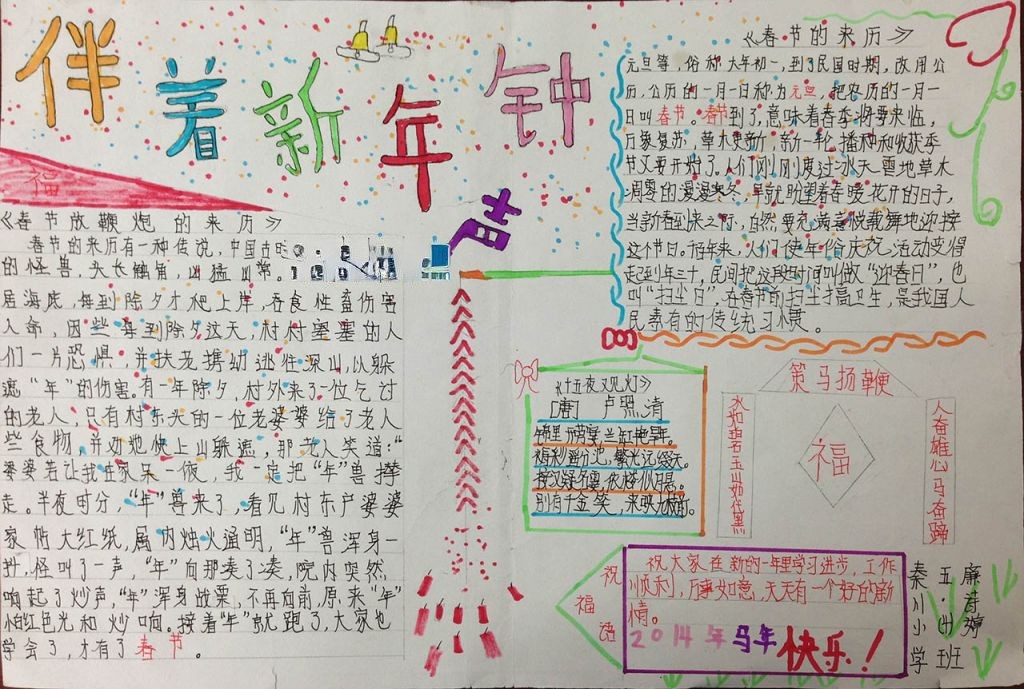 伴着新年钟声
福
《春节放鞭炮的来历》
春节的来历有一种传说，中国古时
的怪兽，头长触角，凶猛
居海底，每到除夕才爬上岸，吞食牲畜伤害
人命，因些每到除夕这天，村村寨寨的人
们一片恐惧，并扶老携幼逃往深山，以躲
避“年”的伤害。有一年除夕，村外来了一位乞讨
的老人，只有村东头的一位老婆婆给了老人
些食物，并劝她快上山躲避，那老人笑道：“
婆婆若让我在家呆一夜，我一定把“年”兽撵
走。半夜时分，“年”兽来了，看见村东户婆婆
家帖大红纸，属内烛火通明，“年”兽浑身一
抖，怪叫了一声，“年”向那凑了凑，院内突然
响起了炒声，“年”浑身战栗，不再向前，原来“年”
怕红色光和炒响。接着“年”就跑了，大家也
学会了，才有了春节。
《春节的来历》
元旦等，俗称大年初一，到了民国时期，改用公
历，公历的一月一日称为元旦，把农历的一月一
日叫春节。春节到了，意味着春季将要来临，
万象复苏，草木更新，新一轮播种和收获季
节又要开始了。人们刚刚度过冰天雪地草木
凋零的漫漫寒冬，早就盼望着春暖花开的日子，
当新春到来之际，自然要充满喜悦载舞地迎接
这个节日。
起到年三十，民间把这段时间叫做“迎春日”，也
叫“扫尘日”，在春节前扫尘搞卫生，是我国人
民素有的传统习惯。
《十五夜观灯》
[唐] 卢照清
锦里开芳宴，兰缸艳早年。
缛彩遥分地，繁光远缀天。
接汉疑星落，依楼似月悬。
别有千金笑，来映九枝前。
策马扬鞭
福
人奋雄心马奋蹄
祝福语
祝大家在新的一年里学习进步，工作
顺利，万事如意，天天有一个好的新
情。
2014年马年快乐！
秦川小学
五·
班